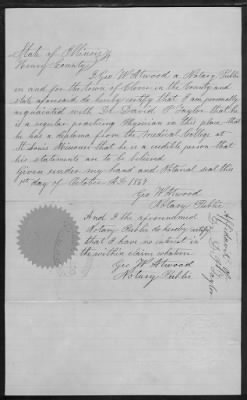 State of Illinois
Henry County
I Geo W Atwood a Notary Public
in and for the town of Clover in the County and
state aforesaid do hereby certify that I am personally
acquainted with Dr David P Taylor that he
is a regular practicing Physician in this place that
he has a diploma from the Medical College at
St Louis Missouri that he is a credible person that
his statements are to be believed
Given under my hand and Notarial seal this
1st day of October AD 1869
Geo W Atwood
Notary Public
And I the aforenamed
Notary Public do hereby certify
that I have no interest in
the within claim whatever
Geo W Atwood
Notary Public
Affidavit of
Taylor